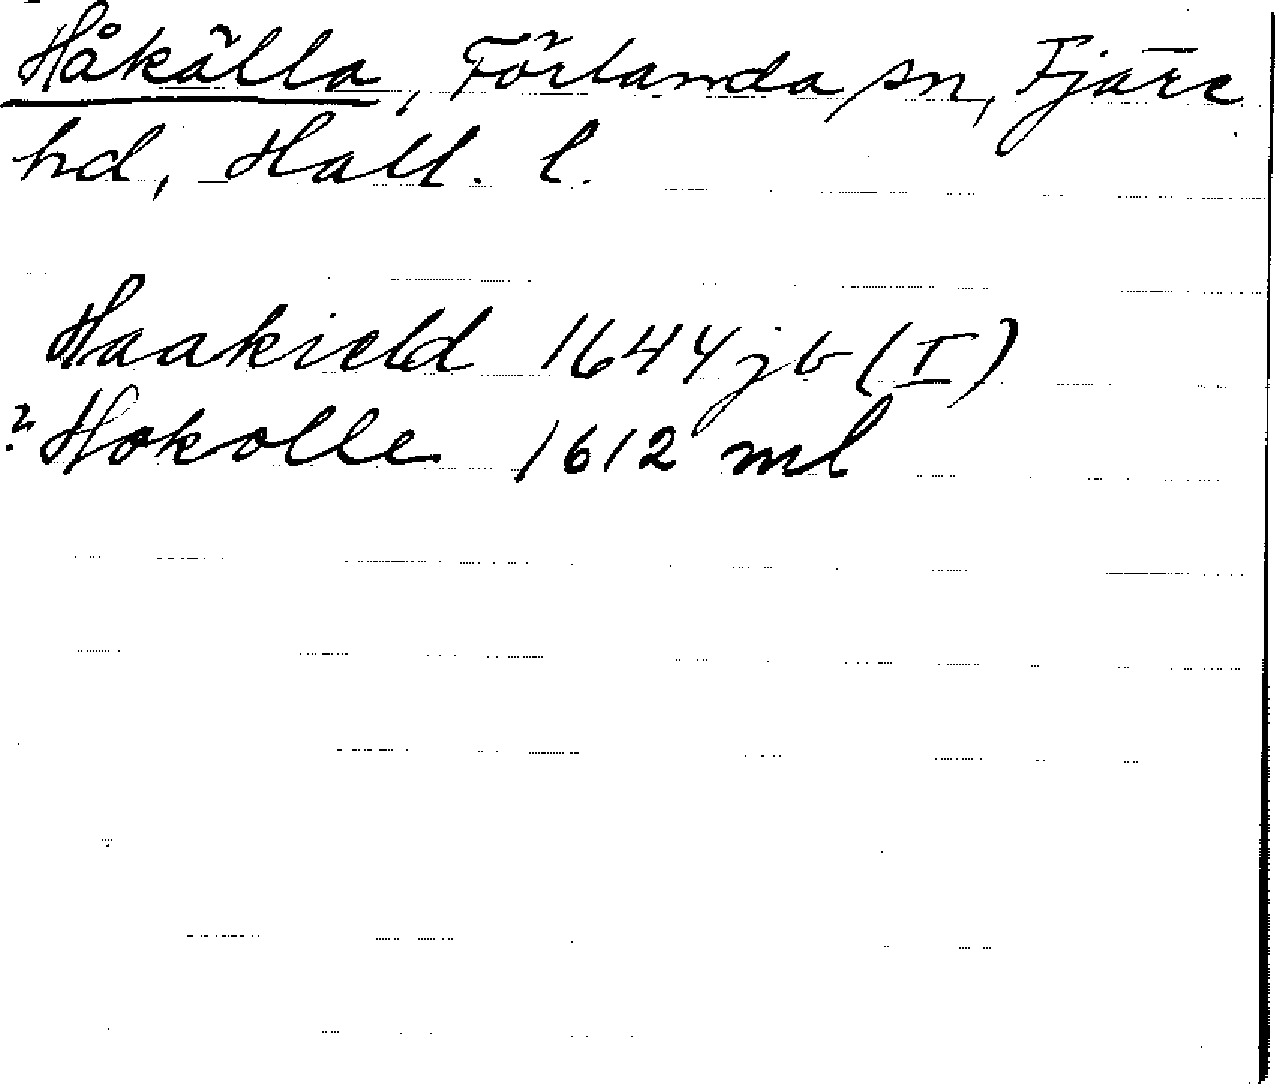 Håkälla, Förlanda sn, Fjäre
hd, Hall. l.
Haakield 1644 jb (I)
? Hokolle 1612 ml